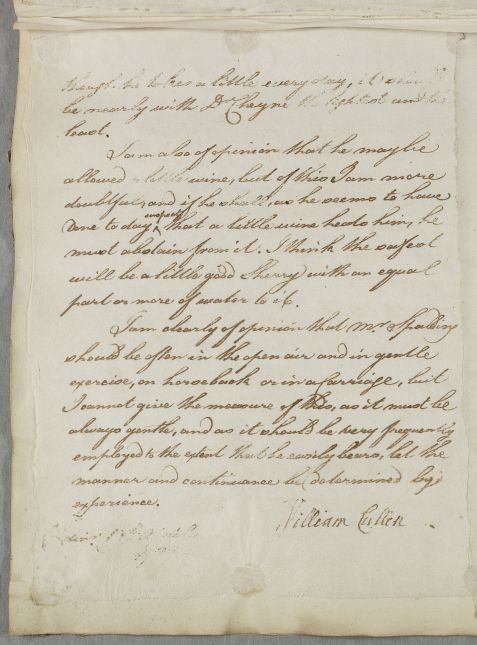 though he takes a little every day, it should
be nearly with Dr Cheyne the lightest and the
least.
I am also of opinion that he may be
allowed a little wine, but of this I am more
doubtful, and if he shall, as he seems to have
done to day, suspect that a little wine heats him, he
must abstain from it. I think the safest
will be a little good Sherry with an equal
part or more of water to it.
I am clearly of opinion that Mr Spalding
should be often in the open air and in gentle
exercise, on horseback or in a Carriage, but
I cannot give the measure of this, as it must be
always gentle, and as it should be very frequently
employed to the extent that he easily bears, let the
manner and continuance be determined by
experience.
William Cullen
Edinr